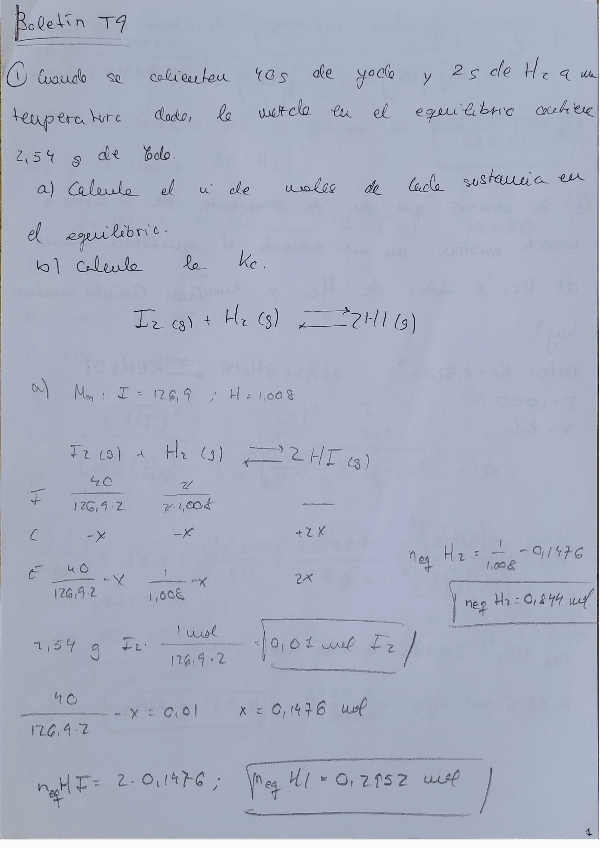 Boletín T9
① Cuando se calienten 40g de yodo y 2g de H₂ a una
temperatura dada, la mezcla en el equilibrio contiene
2,54 g de Iodo.
a) Calcule el nº de moles de cada sustancia en
el equilibrio.
b) Calcule la Kc.
I₂ (g) + H₂ (g) ⇌ 2HI (g)
a) Mm: I = 126,9 ; H = 1,008
I₂ (g) + H₂ (g) ⇌ 2HI (g)
I 40/126,9·2 2/2·1,008 —
C -x -x +2x
E 40/126,9·2 -x 1/1,008 -x 2x
neq H₂ = 1/1,008 - 0,1476
neq H₂ = 0,844 mol
2,54 g I₂ · 1 mol/126,9·2 = 0,01 mol I₂
40/126,9·2 - x = 0,01 x = 0,1476 mol
neq HI = 2·0,1476; neq HI = 0,2952 mol
1